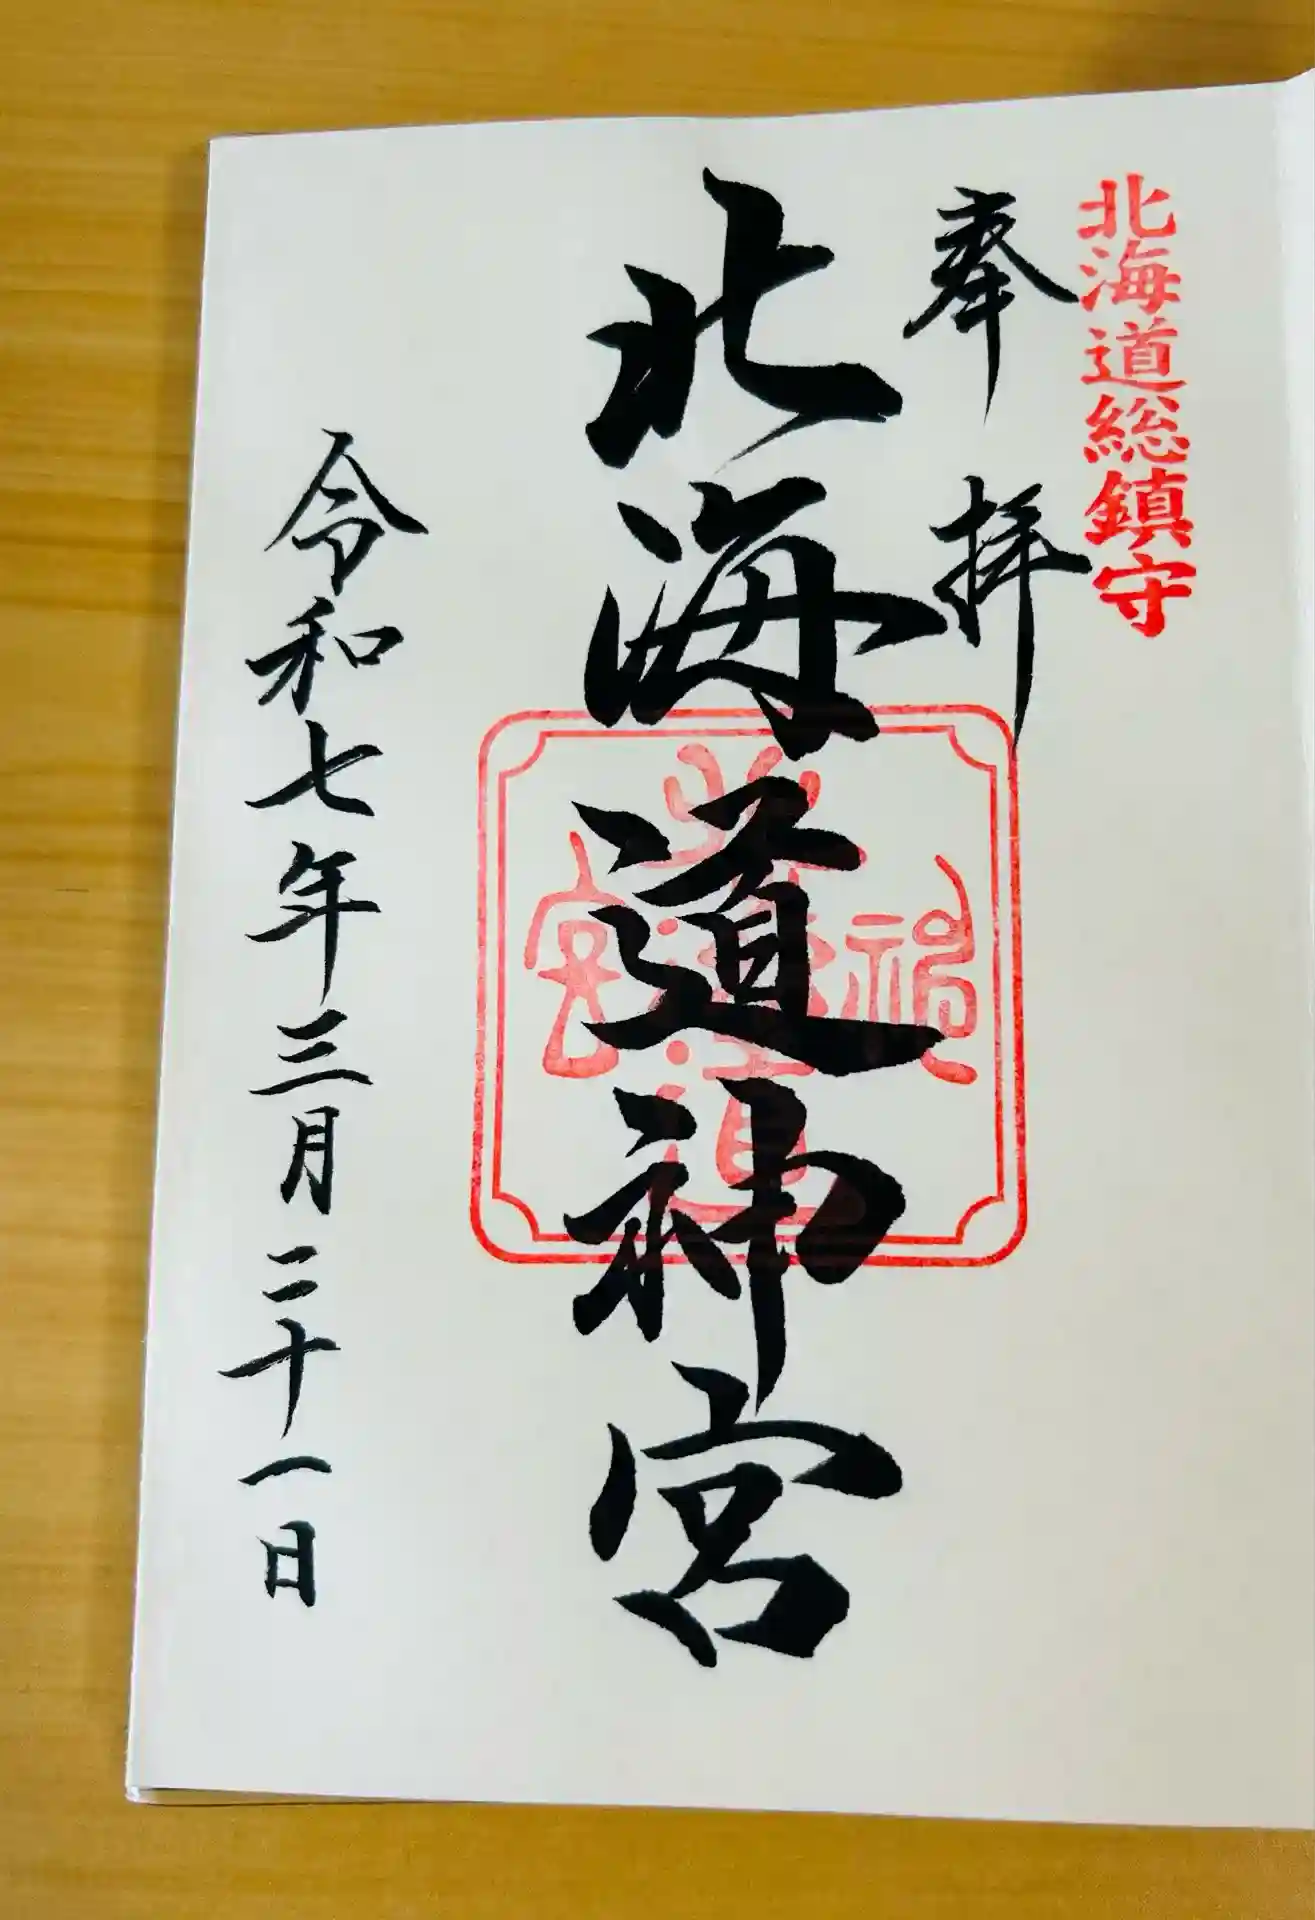 北海道総鎮守
奉拝
北海道神宮
令和七年三月二十一日